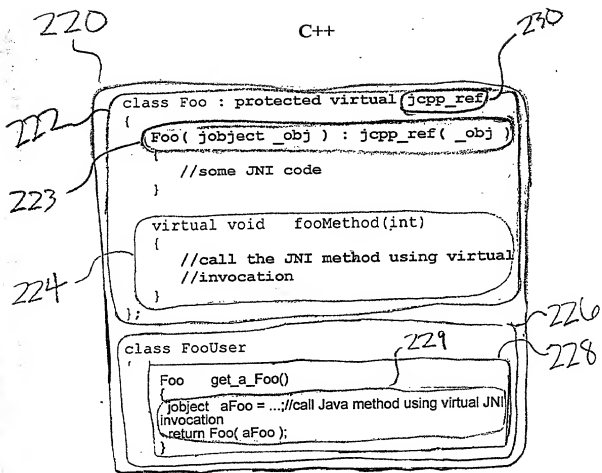 220
C++
230
class Foo : protected virtual jcpp_ref
222
{
Foo( jobject _obj ) : jcpp_ref( _obj )
223
{
//some JNI code
}
virtual void fooMethod(int)
{
//call the JNI method using virtual
224
//invocation
}
};
226
class FooUser
229
228
{
Foo get_a_Foo()
{
jobject aFoo = ...;//call Java method using virtual JNI
invocation
return Foo( aFoo );
}